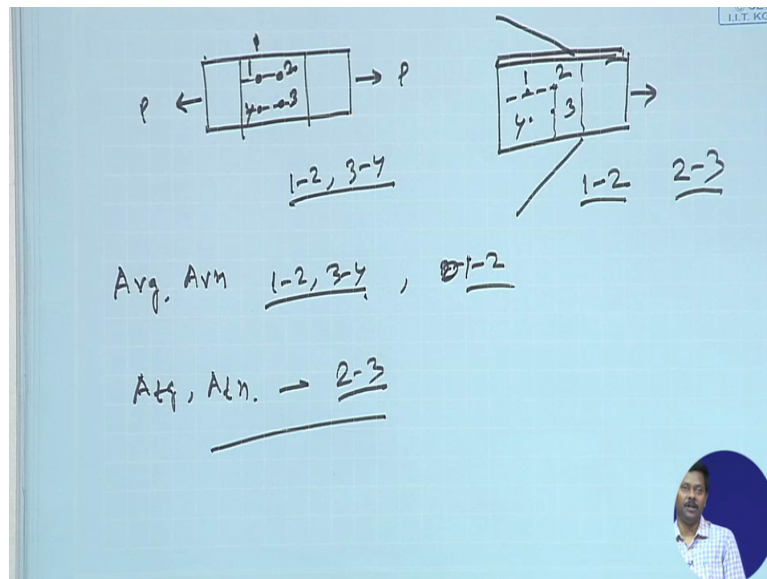 I.I.T. KG
1 2
P ← 4 3 → P
1 2
4 3 →
1-2, 3-4
1-2 2-3
Avg, Avn 1-2, 3-4, 1-2
Atg, Atn. - 2-3